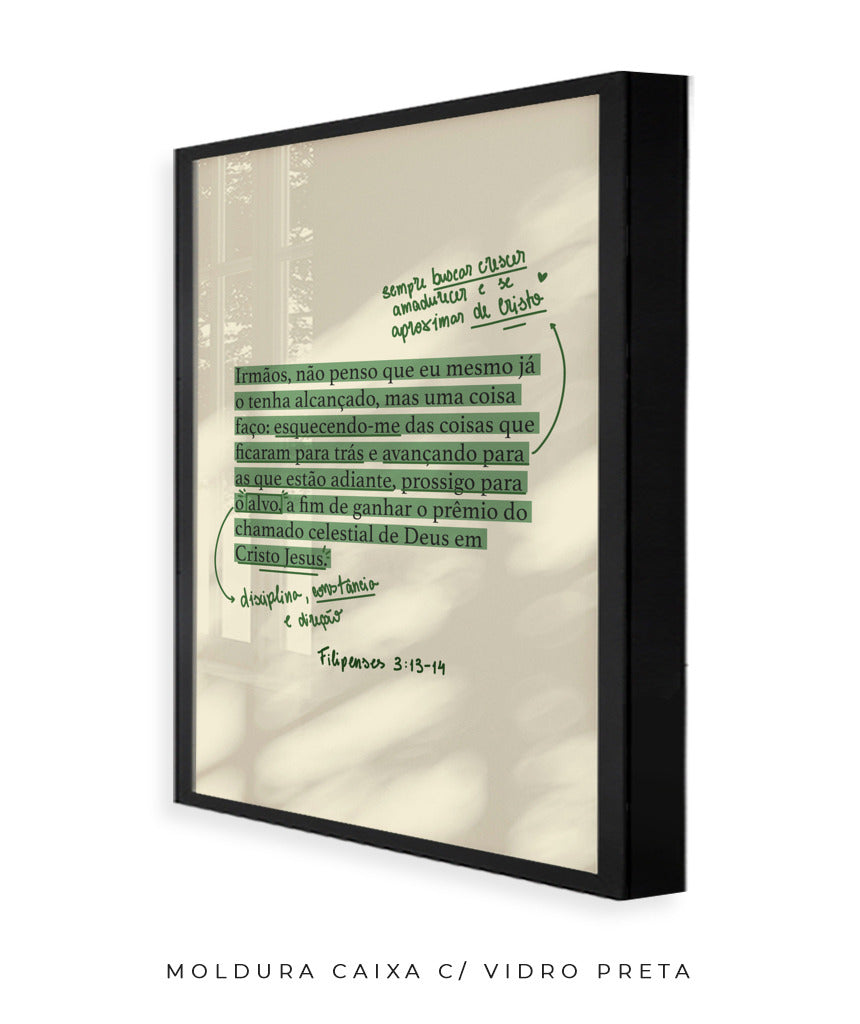 sempre buscar crescer
amadurecer e se
aproximar de Cristo
Irmãos, não penso que eu mesmo já
o tenha alcançado, mas uma coisa
faço: esquecendo-me das coisas que
ficaram para trás e avançando para
as que estão adiante, prossigo para
o alvo, a fim de ganhar o prêmio do
chamado celestial de Deus em
Cristo Jesus.
disciplina, constância
e direção
Filipenses 3:13-14
MOLDURA CAIXA C/ VIDRO PRETA